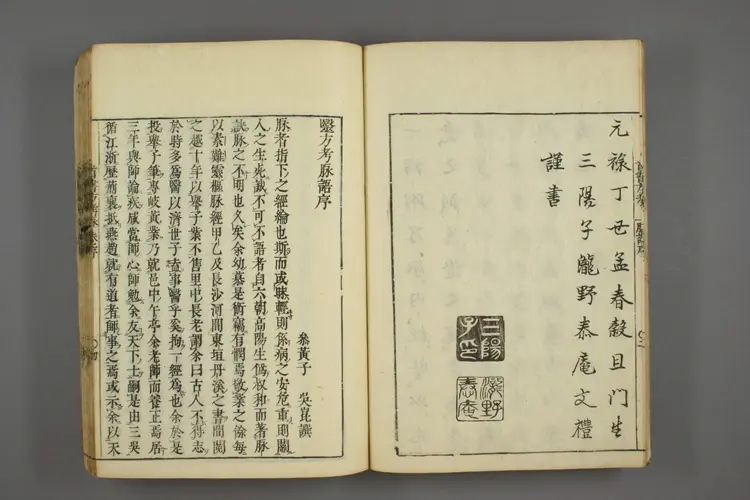 元祿丁丑孟春穀旦門生
三陽子瀧野泰庵文禮
謹書
三陽子印
醫方考脉語序
叅黃子　吳崑譔
脉者指下之經綸也斯而或昧輕則係病之安危重則關
人之生死誠不可不語者自六朝高陽生僞叔和而著脉
訣脉之不明也久矣余幼慕是術竊有惘焉敬業之餘每
以素難靈樞脉經甲乙及長沙河間東垣丹溪之書間閱
之越十年以舉子業不售里中長老謂余曰古人不得志
於時多爲醫以濟世子盍事醫乎奚拘一經爲也余於是
投舉子筆專岐黃業乃就邑中午亭余老師而養正焉居
三年與師論疾咸當師心師勉余友天下士嗣是由三吳
循江浙歷荊襄抵燕趙就有道者師事之焉或示余以天